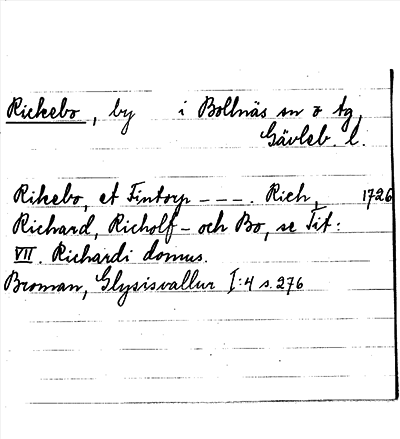 Rickebo, by i Bollnäs sn o tg,
Gävleb. l.
Rikebo, et Fintorp - - -. Rich, 1726
Richard, Richolf - och Bo, se Tit:
VII. Richardi domus.
Broman, Glysisvallur I:4 s.276